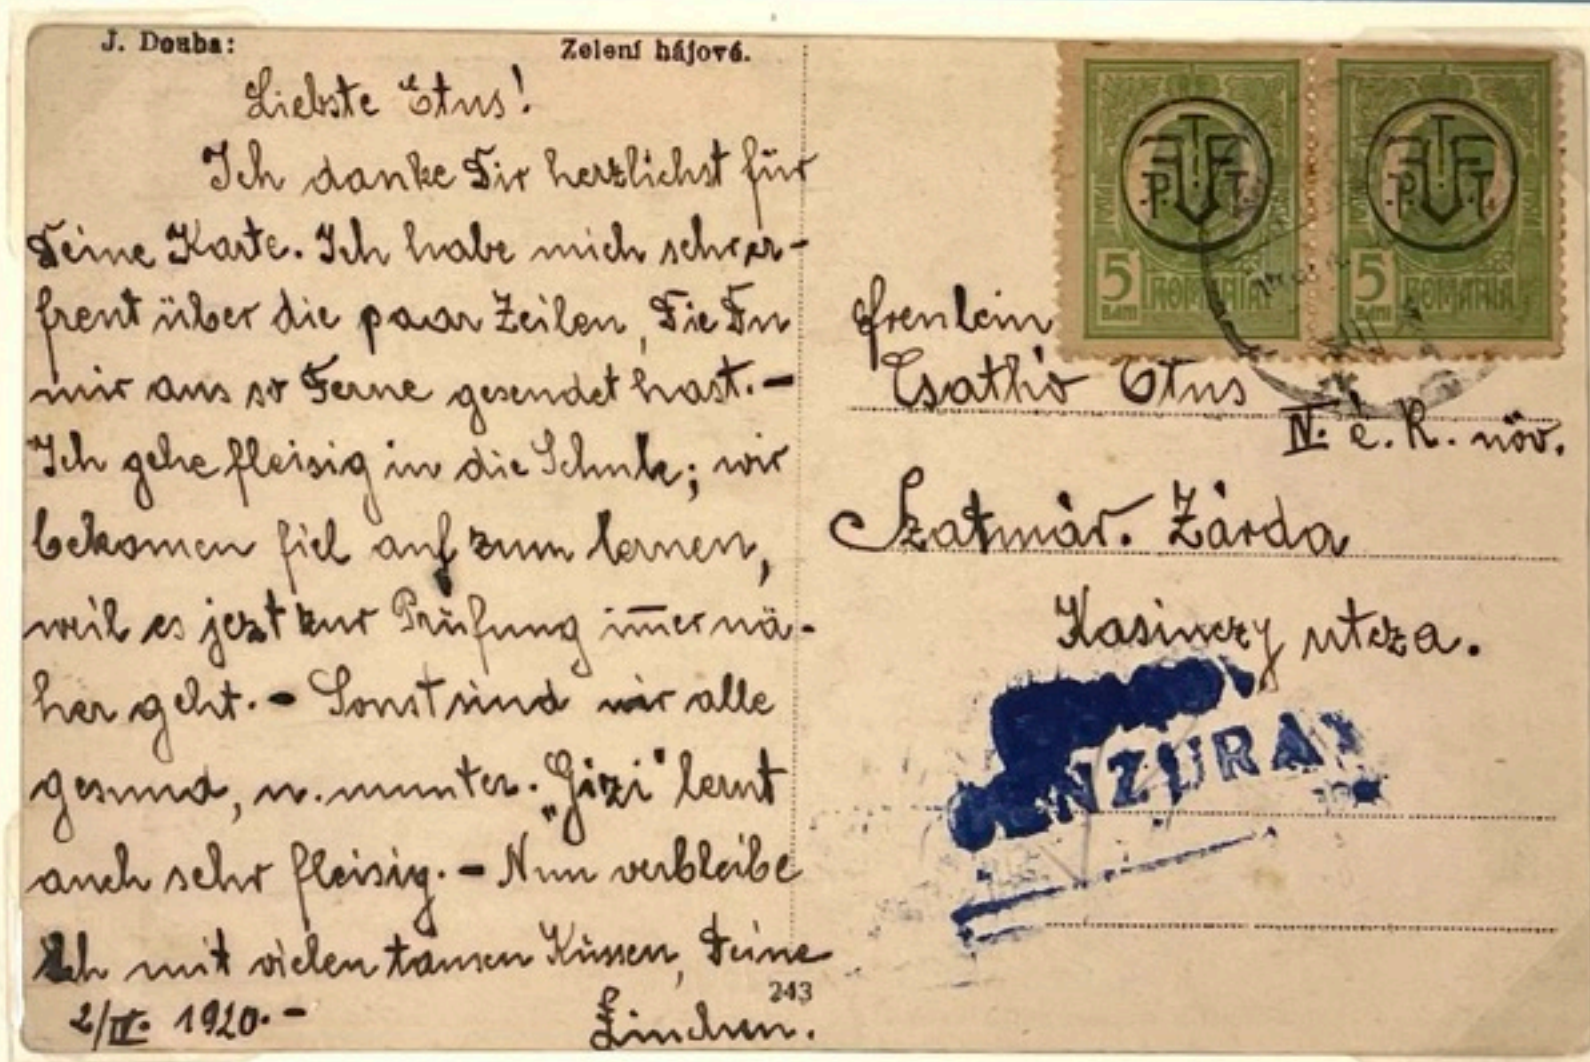 J. Douba:
Zelení hájové.
Liebste Etus!
Ich danke Dir herzlichst für
Deine Karte. Ich habe mich sehr er-
freut über die paar Zeilen, Die Du
mir aus so Ferne gesendet hast. –
Ich gehe fleisig in die Schule; wir
bekomen fiel auf zum lernen,
weil es jezt zur Prüfung im̅er nä-
her geht. – Sonst sind wir alle
gesund, u. munter. „Gizi" lernt
auch sehr fleisig. – Nun verbleibe
Ich mit vielen tausen Küssen, Deine
2/IV. 1920. –
Linchen.
243
5 5
BANI ROMANIA BANI ROMANIA
Freulein
Csathó Etus
IV. é. K. növ.
Szatmár. Zárda
Kasinczy utcza.
CENZURAT